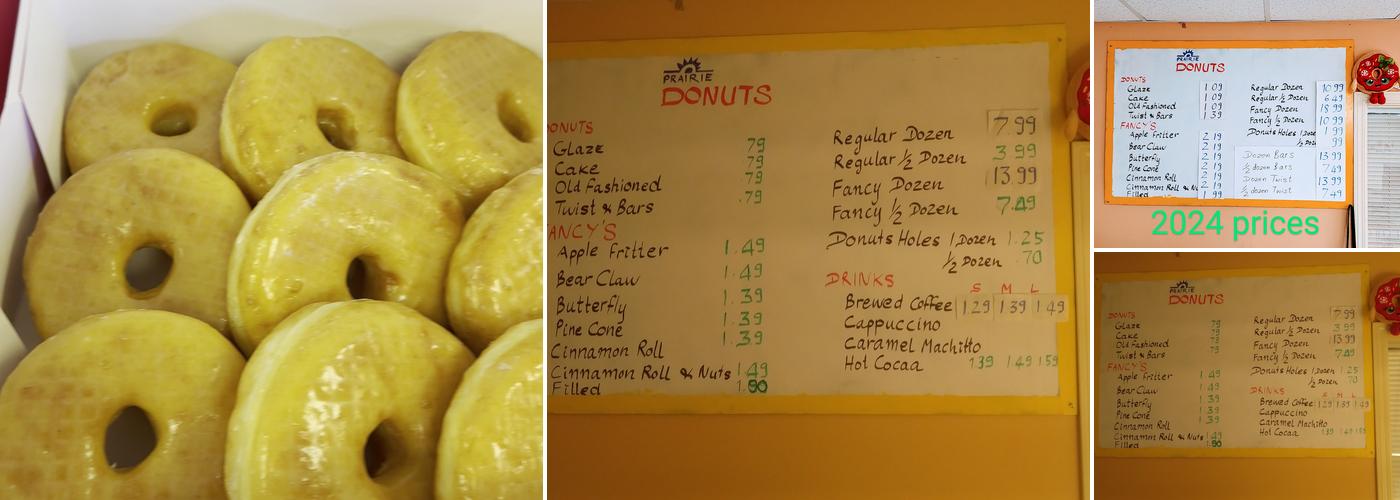 PRAIRIE
DONUTS
DONUTS
Glaze 79
Cake 79
Old Fashioned 79
Twist & Bars .79
FANCY'S
Apple Fritter 1.49
Bear Claw 1.49
Butterfly 1.39
Pine Cone 1.39
Cinnamon Roll 1.39
Cinnamon Roll & Nuts 1.49
Filled
Regular Dozen 7.99
Regular 1/2 Dozen 3 99
Fancy Dozen 13.99
Fancy 1/2 Dozen 7.49
Donuts Holes 1 Dozen 1.25
1/2 Dozen .70
DRINKS
S M L
Brewed Coffee 1.29 1.39 1.49
Cappuccino
Caramel Machitto
Hot Cocaa 1.39 1.49 1.59
PRAIRIE
DONUTS
DONUTS
Glaze 1 09
Cake 1 09
Old Fashioned 1 09
Twist & Bars 1 39
FANCY'S
Apple Fritter 2 19
Bear Claw 2 19
Butterfly 2 19
Pine Cone 2 19
Cinnamon Roll 2 19
Cinnamon Roll & Nu 2 19
Filled 1 99
Regular Dozen 10 99
Regular 1/2 Dozen 6 49
Fancy Dozen 18 99
Fancy 1/2 Dozen 10 99
Donuts Holes 1 Doze 1 99
1/2 Doz 99
Dozen Bars 13 99
1/2 dozen Bars 7 49
Dozen Twist 13 99
1/2 dozen Twist 7 49
2024 prices
PRAIRIE
DONUTS
DONUTS
Glaze 79
Cake 79
Old Fashioned 79
Twist & Bars
FANCY'S
Apple Fritter 1.49
Bear Claw 1.49
Butterfly 1.39
Pine Cone 1.39
Cinnamon Roll
Cinnamon Roll & Nuts 1.49
Filled
Regular Dozen 7.99
Regular 1/2 Dozen 3 99
Fancy Dozen 13.99
Fancy 1/2 Dozen 7.49
Donuts Holes 1 Dozen 1.25
1/2 Dozen .70
DRINKS
S M L
Brewed Coffee 1.29 1.39 1.49
Cappuccino
Caramel Machitto
Hot Cocaa 1.39 1.49 1.59